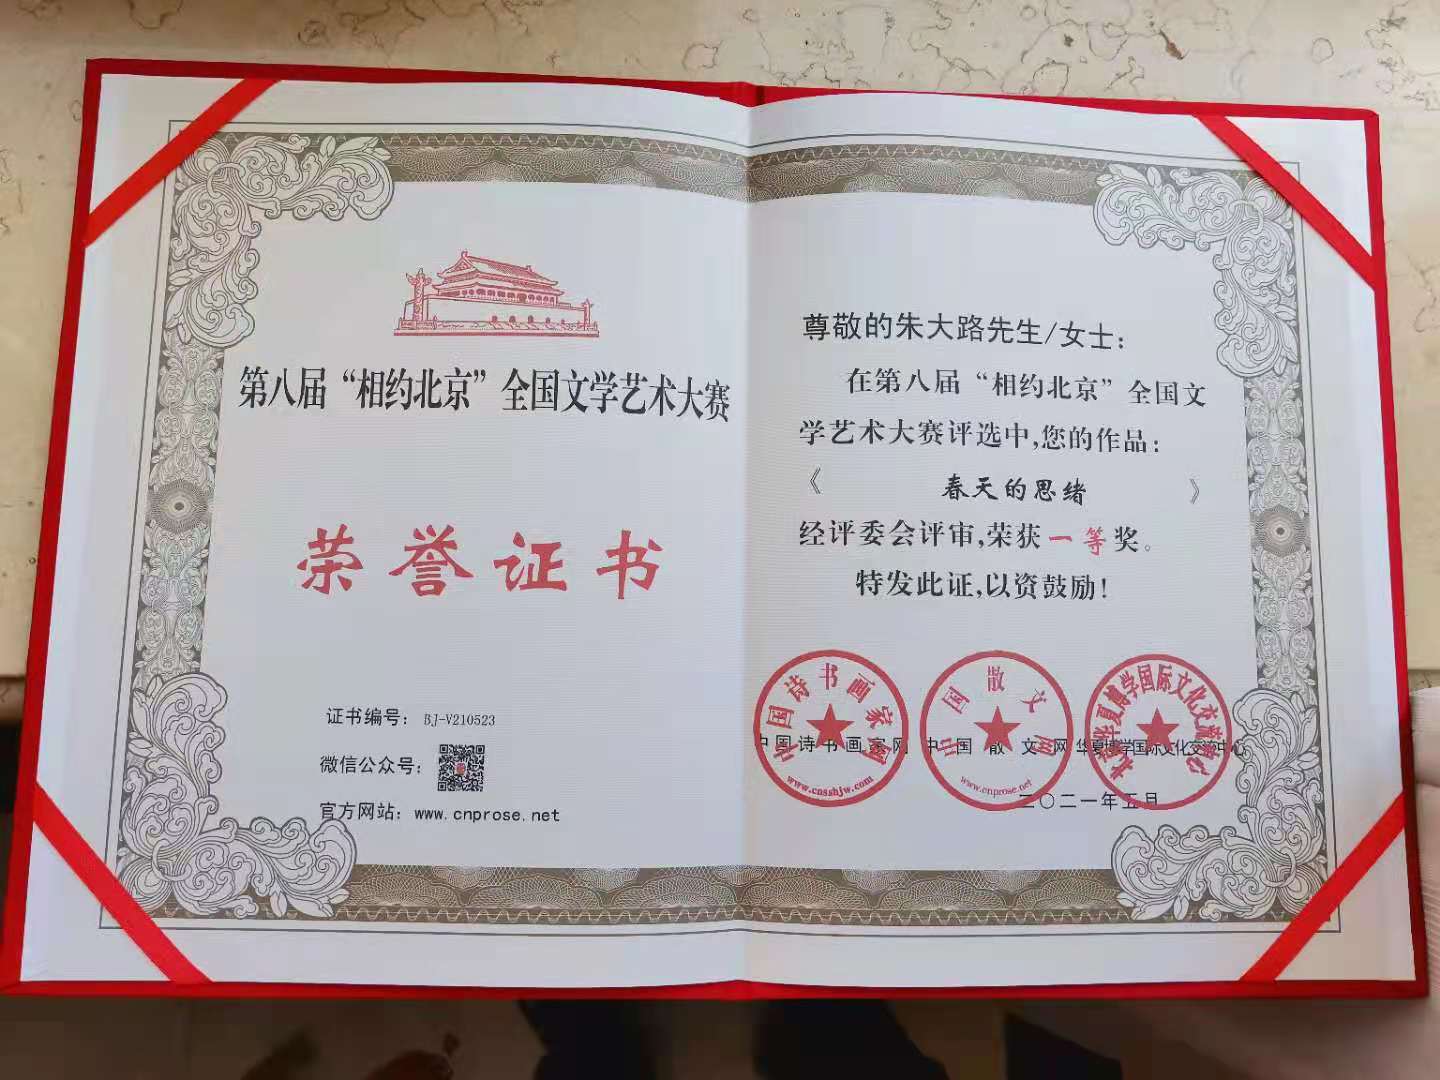 第八届“相约北京”全国文学艺术大赛
荣誉证书
证书编号：BJ-V210523
微信公众号：
官方网站：www.cnprose.net
尊敬的朱大路先生/女士：
在第八届“相约北京”全国文
学艺术大赛评选中,您的作品：
《春天的思绪》
经评委会评审,荣获一等奖。
特发此证,以资鼓励！
中国诗书画家网
www.cnsshjw.com
中国散文网
www.cnprose.net
北京华夏博学国际文化交流中心
中国诗书画家网 中国散文网 华夏博学国际文化交流中心
二〇二一年五月